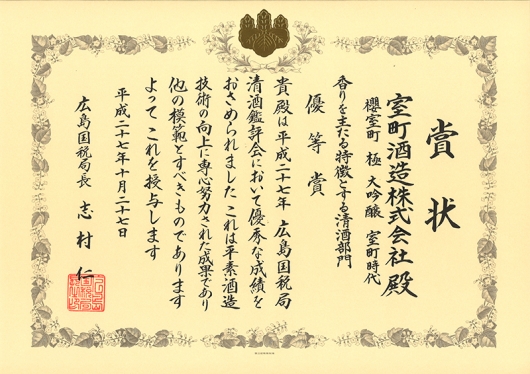 賞状
室町酒造株式会社殿
櫻室町 極 大吟醸 室町時代
香りを主たる特徴とする清酒部門
優等賞
貴殿は平成二十七年 広島国税局
清酒鑑評会において優秀な成績を
おさめられました これは平素酒造
技術の向上に専心努力された成果であり
他の模範とすべきものであります
よって これを授与します
平成二十七年十月二十七日
広島国税局長 志村 仁